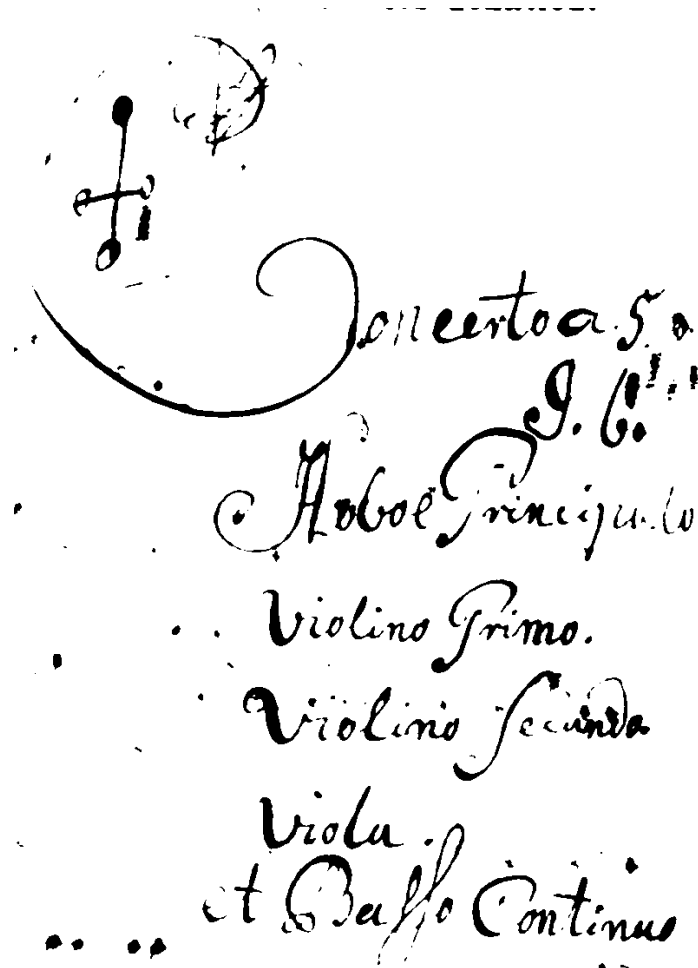 Concerto a 5.
Hoboe Principalo
Violino Primo.
Violino Secundo
Viola.
et Basso Continuo